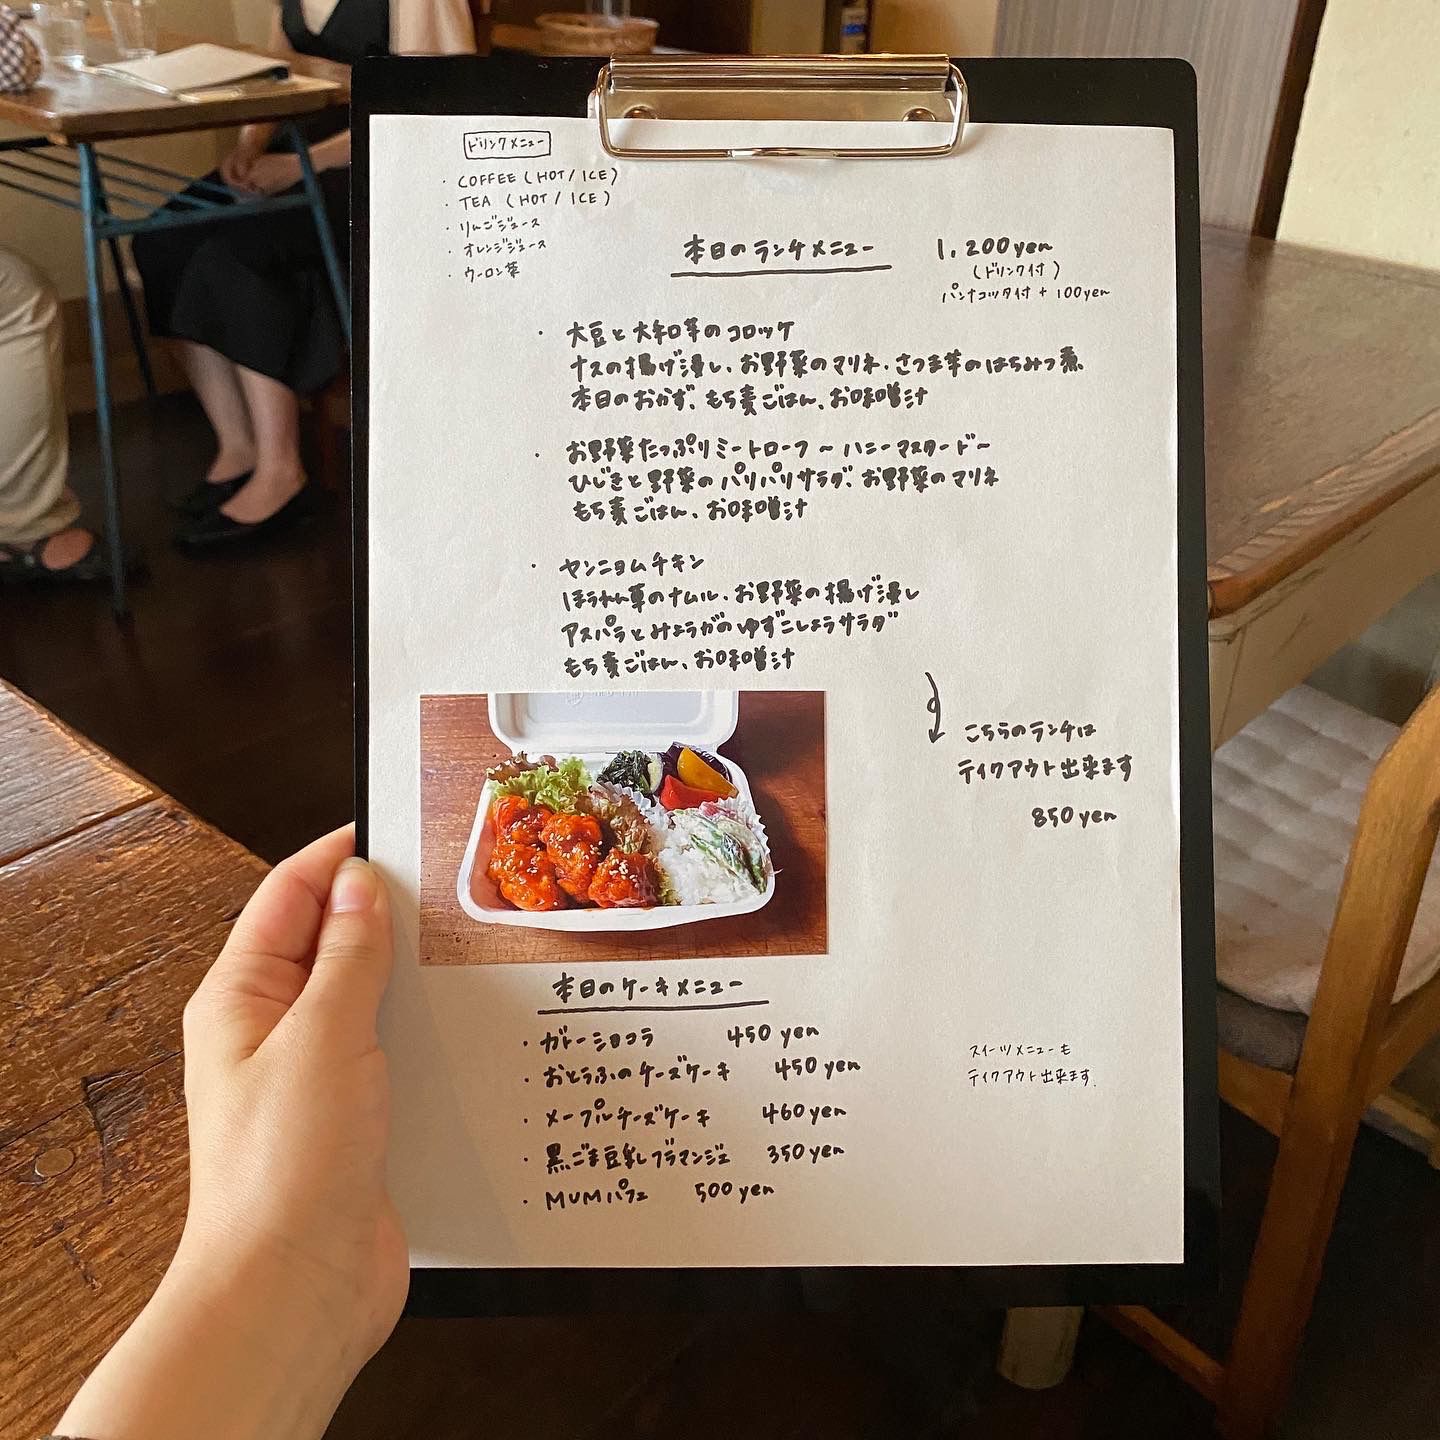 ドリンクメニュー
・COFFEE (HOT / ICE)
・TEA (HOT / ICE)
・りんごジュース
・オレンジジュース
・ウーロン茶
本日のランチメニュー 1,200yen
(ドリンク付)
パンナコッタ付 + 100yen
・大豆と大和芋のコロッケ
ナスの揚げ浸し、お野菜のマリネ・さつま芋のはちみつ煮
本日のおかず、もち麦ごはん、お味噌汁
・お野菜たっぷりミートローフ 〜ハニーマスタード〜
ひじきと野菜のパリパリサラダ、お野菜のマリネ
もち麦ごはん、お味噌汁
・ヤンニョムチキン
ほうれん草のナムル、お野菜の揚げ浸し
アスパラとみょうがのゆずこしょうサラダ
もち麦ごはん、お味噌汁
こちらのランチは
テイクアウト出来ます
850yen
本日のケーキメニュー
・ガトーショコラ 450yen
・おとうふのチーズケーキ 450yen
・メープルチーズケーキ 460yen
・黒ごま豆乳ブラマンジェ 350yen
・MUMパフェ 500yen
スイーツメニューも
テイクアウト出来ます.